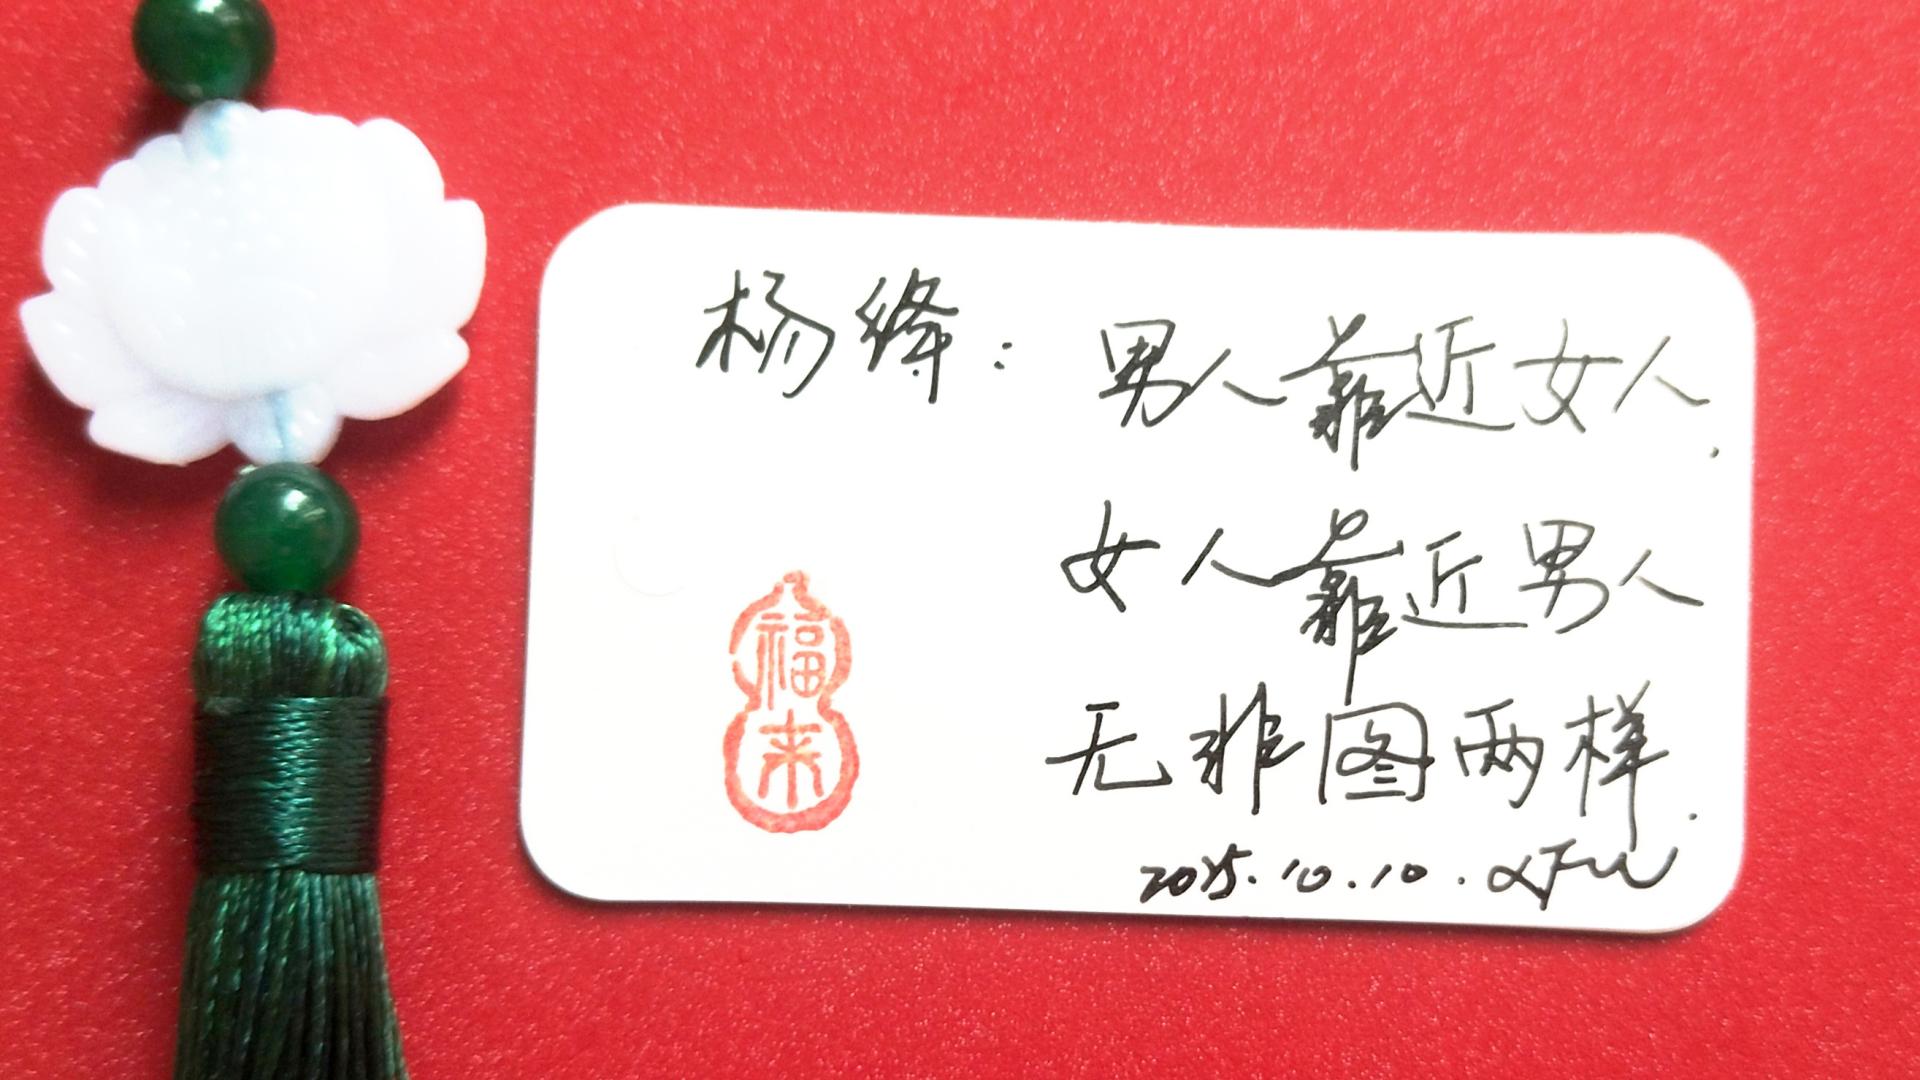 杨绛：男人靠近女人.
女人靠近男人
无非图两样.
2025.10.10.
福来